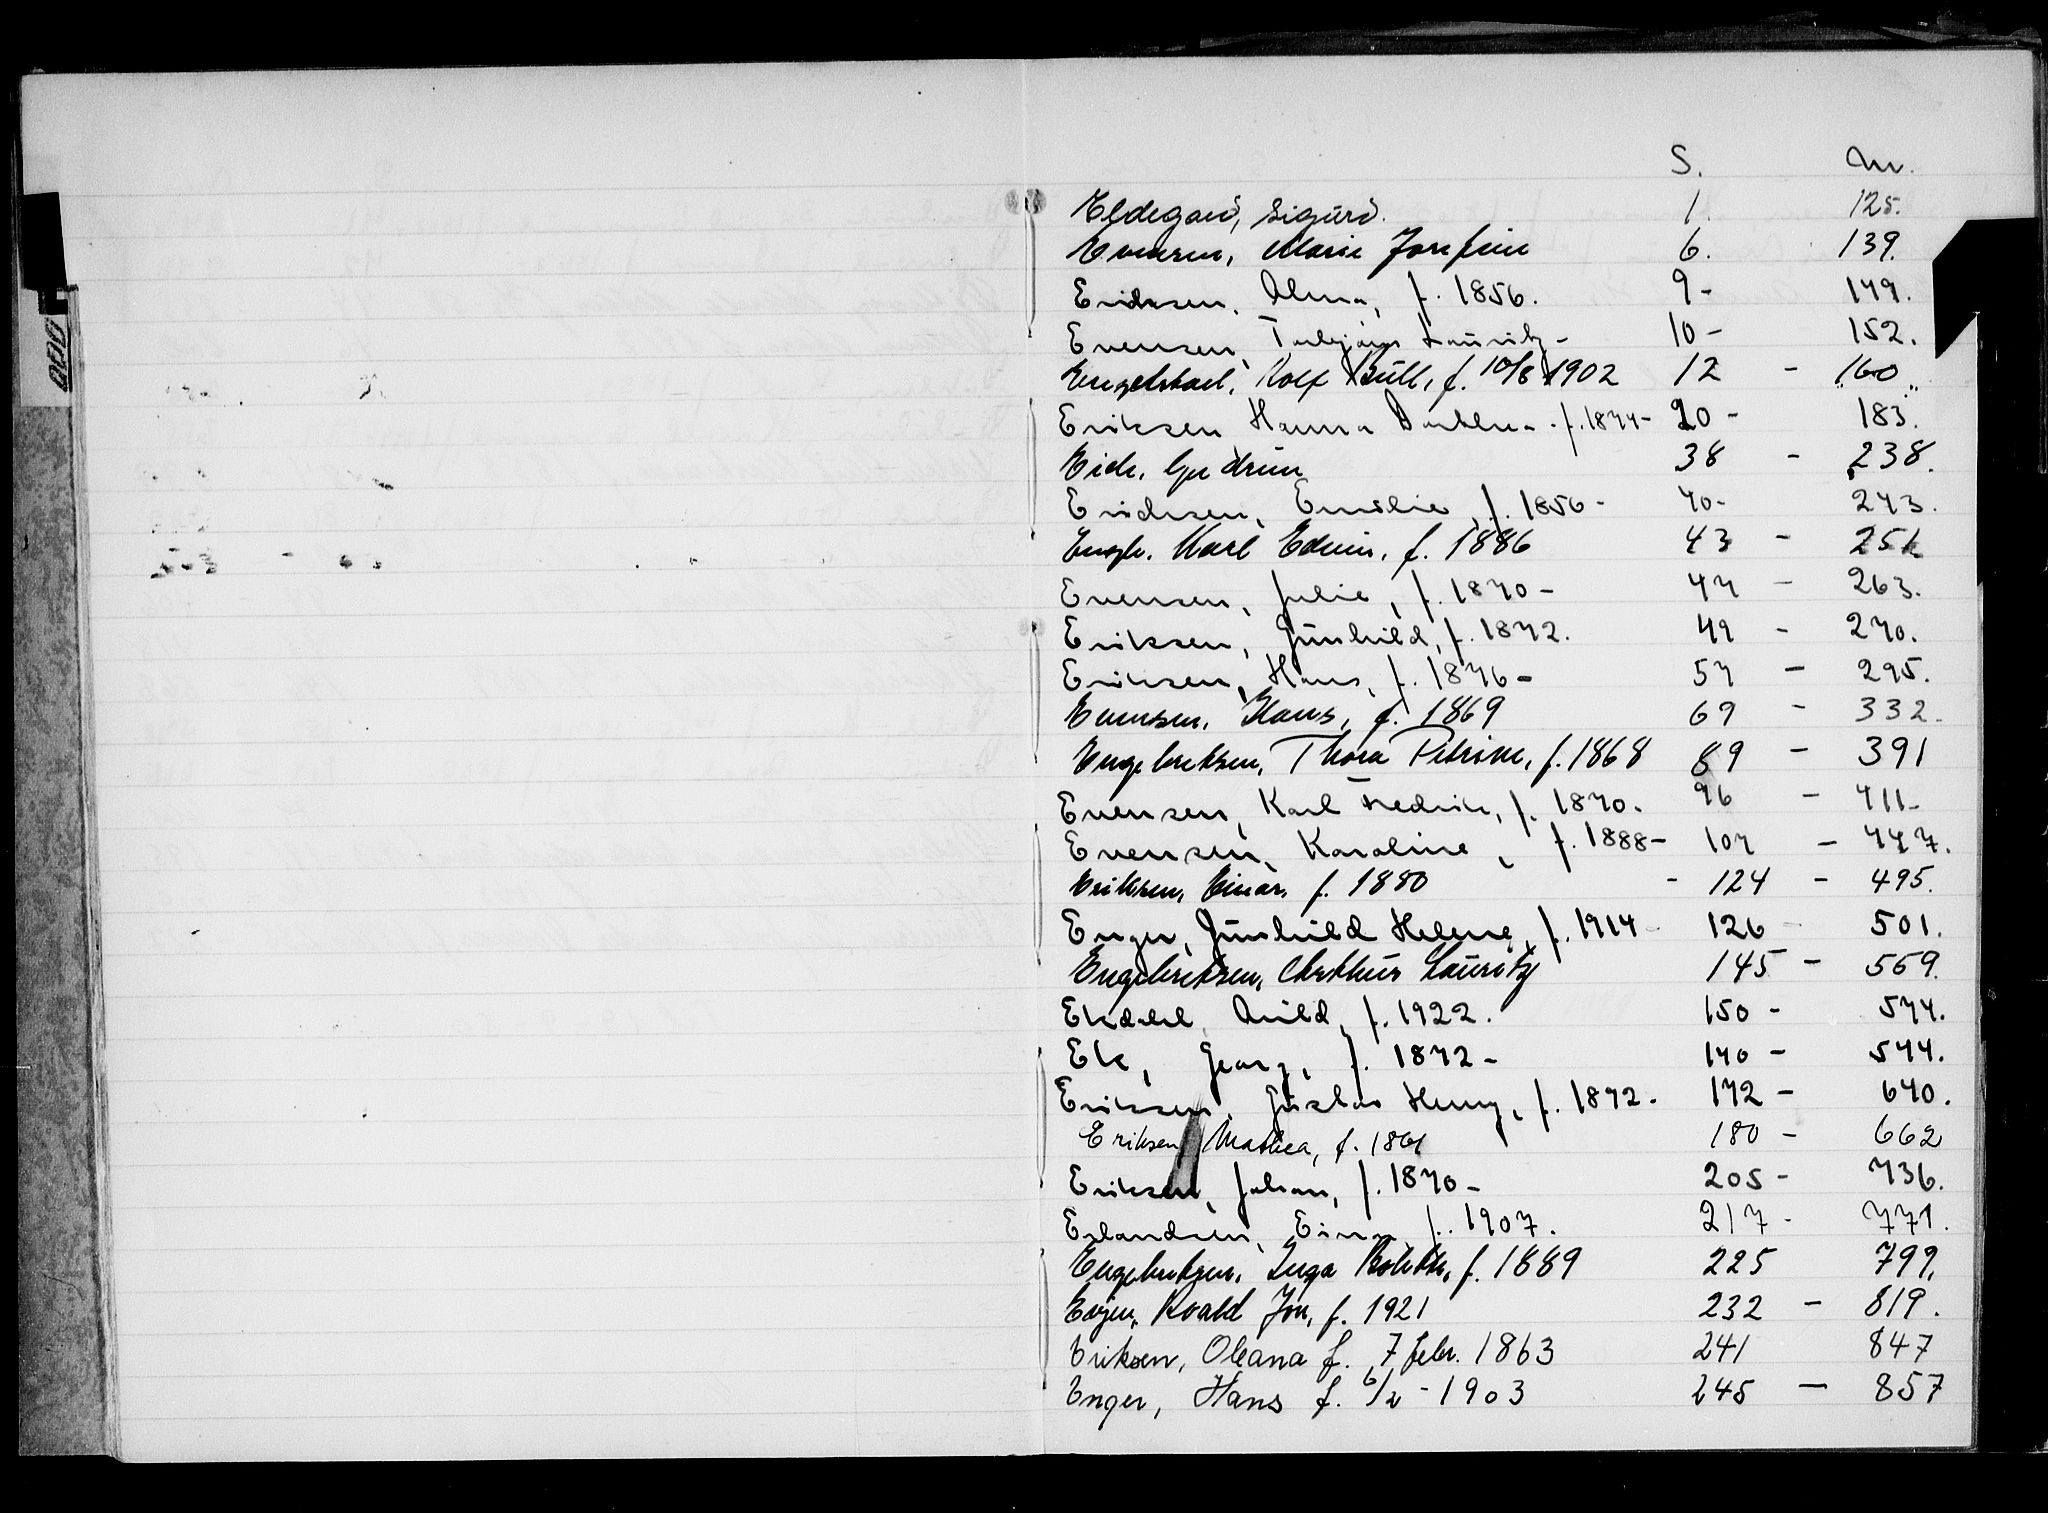 S. Nr.
Eldegard, Sigurd. 1. 125.
Evensen, Marie Josefine 6. 139.
Eriksen, Alma, f. 1856. 9- 149.
Evensen, Torbjørn Lauritz- 10- 152.
Engelstad, Rolf Bull, f. 10/8 1902 12 - 160
Eriksen Hanna Barthea. f. 1874- 20- 183.
Eide, Gudrun 38 - 238.
Erichsen, Emilie, f. 1856- 40- 243.
Engh. Karl Edvin, f. 1886 43 - 251
Evensen, Julie, f. 1870- 47 - 263.
Eriksen, Gunhild, f. 1872. 49 - 270.
Eriksen, Hans, f. 1876- 57 - 295.
Evensen, Hans, f. 1869 69 - 332.
Engebretsen, Thora Petrine, f. 1868 89 - 391
Evensen, Karl Fredrik, f. 1870. 96 - 411-
Evensen, Karoline, f. 1888- 107 - 447.
Eriksen, Einar, f. 1880 - 124 - 495.
Enger, Gunhild Helene, f. 1914- 126 - 501.
Engebretsen, Arthur Lauritz 145 - 559.
Ekdahl, Arild, f. 1922. 150- 574.
Ek, Georg, f. 1872- 140- 544.
Eriksen, Gustav Henry, f. 1872. 172- 640.
Eriksen, Mathea, f. 1861 180- 662
Eriksen, Johan, f. 1870- 205- 736.
Erlandsen, Einar f. 1907. 217- 771.
Engebretsen, Inga Bolette, f. 1889 225 799,
Evjen, Roald Jon, f. 1921 232 - 819.
Eriksen, Oleana f. 7 febr. 1863 241 847
Enger, Hans f. 6/2-1903 245 - 857